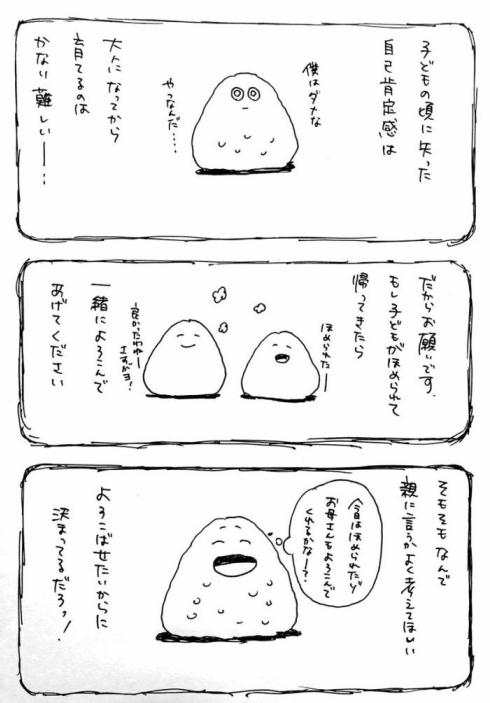 子どもの頃に失った
自己肯定感は
僕はダメな
やつなんだ・・・・
大人になってから
育てるのは
かない難しい―・・
だからお願いです.
もし子どもがほめられて
帰ってきたら
ほめられたー
良かったねー
さすがヨ!
一緒によろこんで
あげてください
そもそもなんで
親に言うかよく考えてほしい
今日ほめられたけど
お母さんもよろこんで
くれるかなー?
よろこばせたいからに
決まってるだろっ!